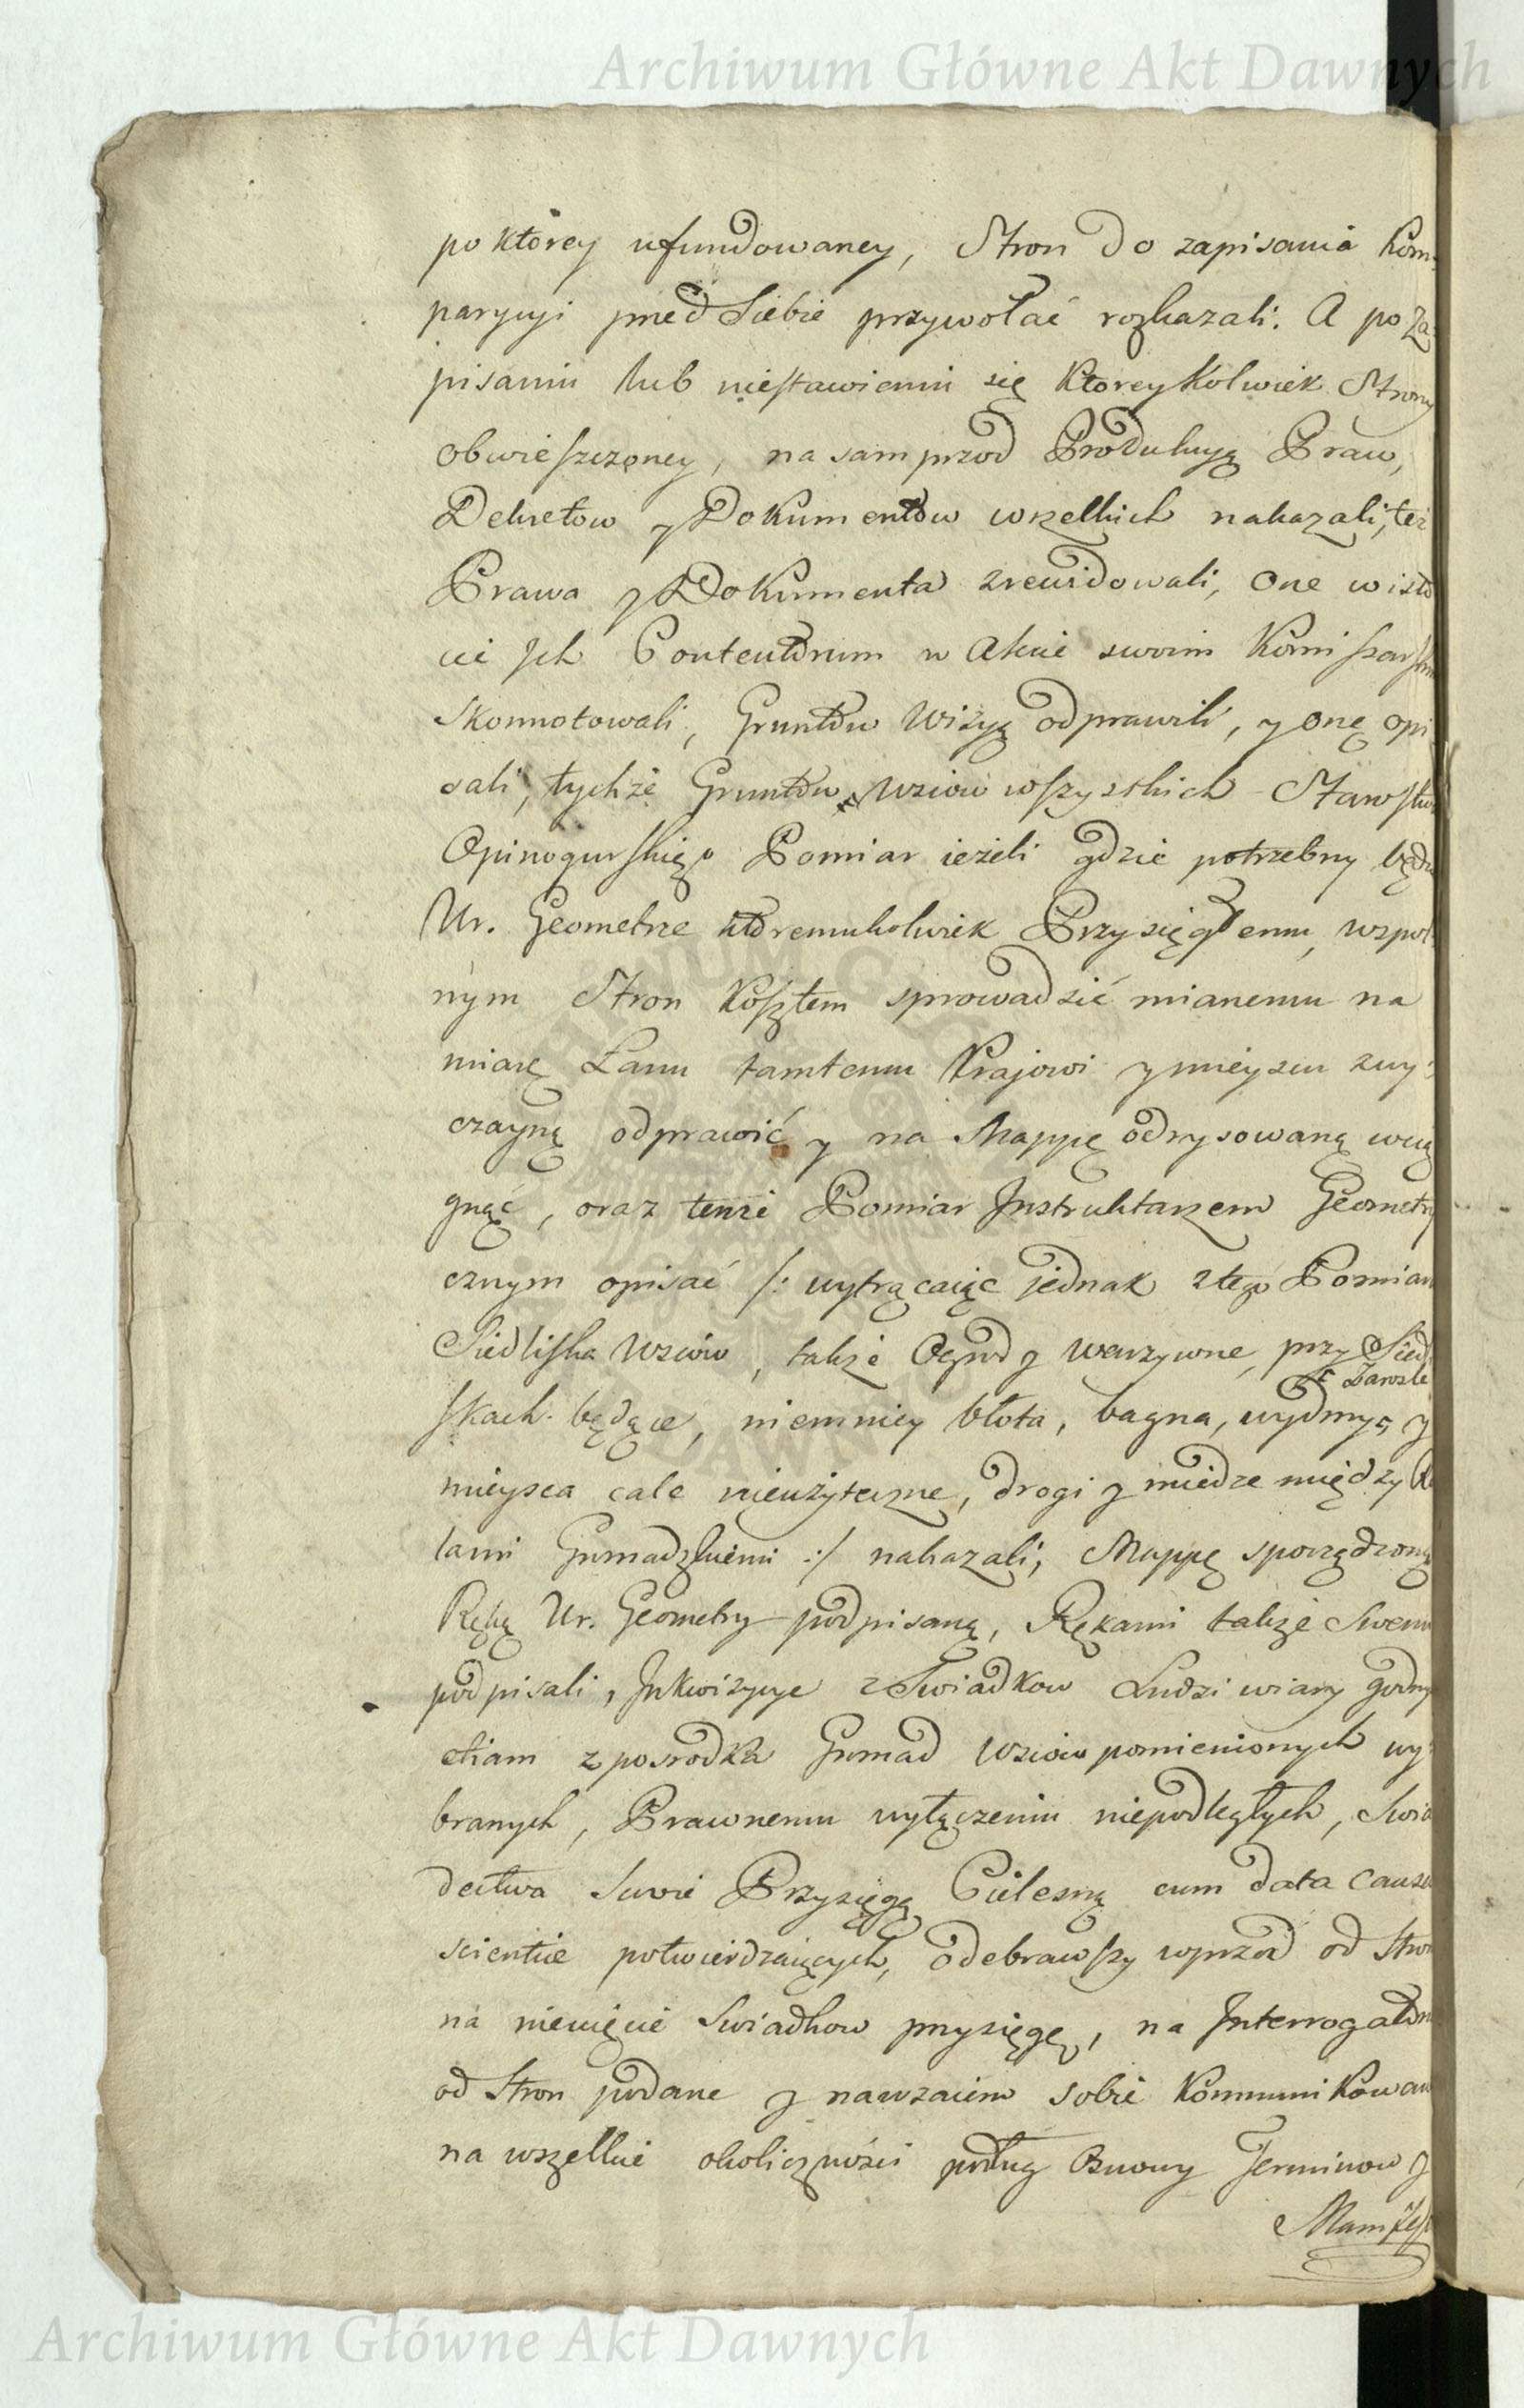 Archiwum Główne Akt Dawnych
po ktorey ufundowaney, Stron do zapisania kom:
parycyi przed Siebie przywołać rozkazali. A po Za:
pisaniu lub niestawieniu się ktoreykolwiek Strony
obwieszczoney, na sam przod Produkcyą Praw,
Dekretow y Dokumentow wszelkich nakazali, też
Prawa y Dokumenta zrewidowali, one w isto
cie Jch Contentorum w Akcie swoim Kommissarskim
skonnotowali, Gruntow Wizyą odprawili, y onę opi
sali, tychże Gruntow Wsiow wszystkich Starostwa
Opinogurskiego Pomiar ieżeli gdzie potrzebny będzie
Ur. Geometrze ktoremukolwiek Przysięgłemu, wspol
nym Stron kosztem sprowadzić mianemu na
miarę Łanu tamtemu Krajowi y mieyscu zwy:
czayną odprawić y na Mappę odrysowaną wcią
gnąć, oraz tenże Pomiar Jnstruktarzem Geometry
cznym opisać /: wytrącaiąc jednak z tego Pomiaru
Siedliska Wsiow, także Ogrody warzywne, przy Siedli
Zarosle
skach będące, niemniey błota, bagna, wydmy, y
mieysca cale nieużyteczne, drogi y miedze między Ro
lami Gromadzkiemi :/ nakazali, Mappę sporządzoną
Ręką Ur. Geometry podpisaną, Rękami także Swemi
podpisali, Jnkwizycye z Swiadkow Ludzi wiary godny
etiam z posrodka Gromad Wsiow pomienionych wy:
branych, Prawnemu wyłączeniu niepodległych, Swia
dectwa swoie Przysięgą Cielesną cum data causa
scientiæ potwierdzaiących, odebrawszy wprzod od Stron
na niewięcie Swiadkow przysięgę, na Jnterrogatoria
od Stron podane y nawzaiem sobie kommunikowane
na wszelkie okoliczności podług Osnowy Terminow y
Manifest
Archiwum Główne Akt Dawnych